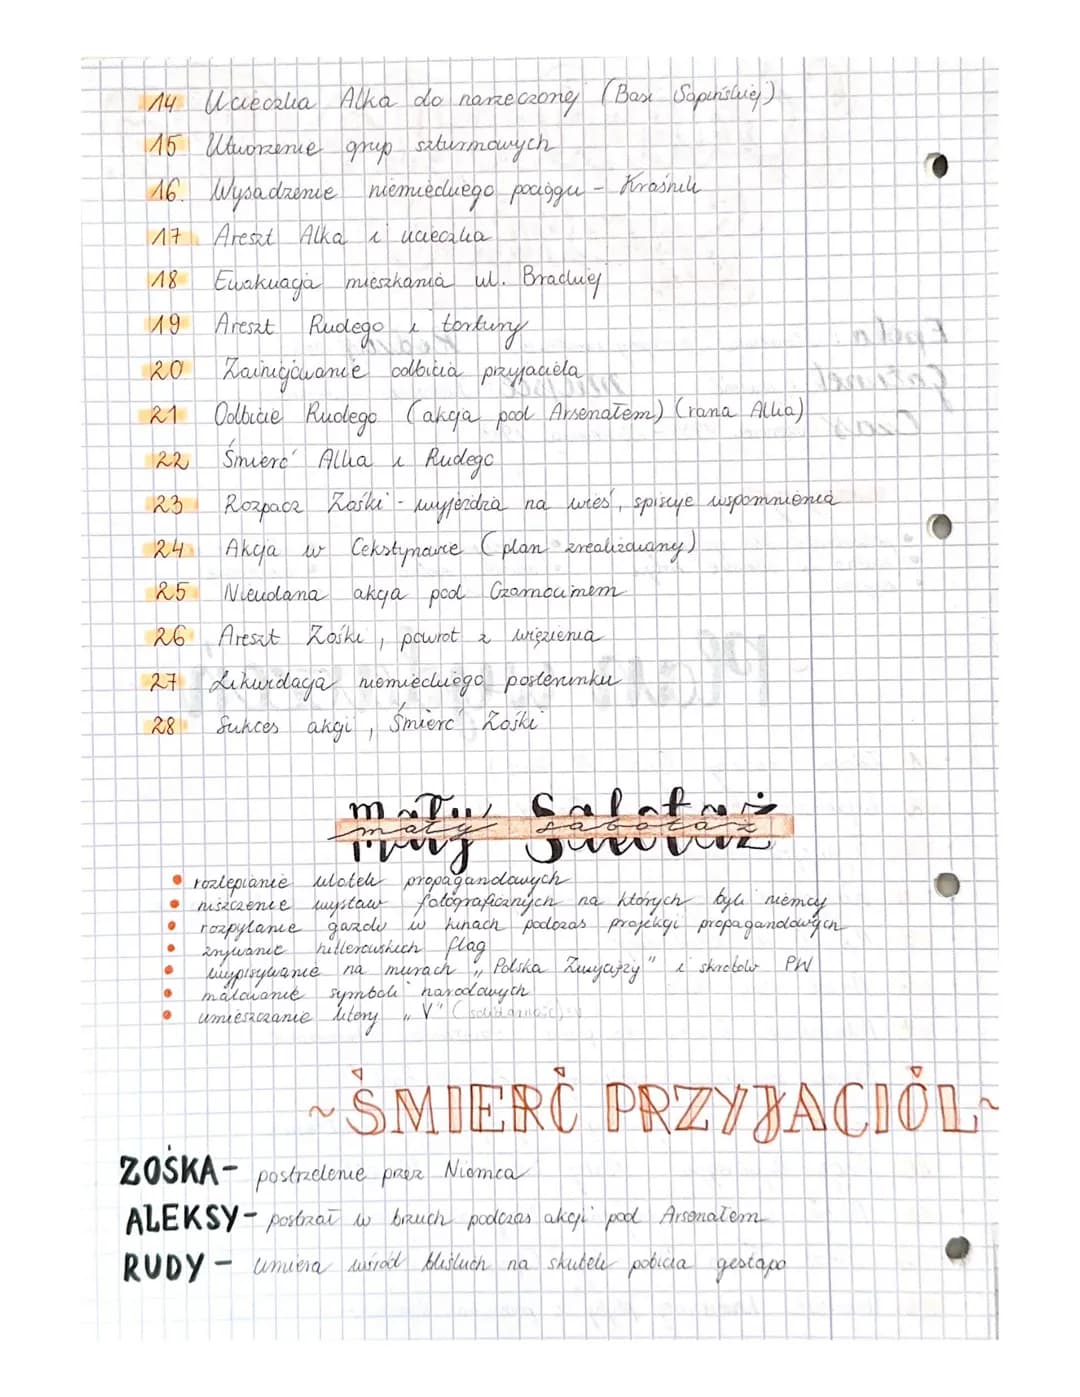 14 Ucieczka Alka do narzeczonej (Basi Sapińskiej)
15 Utworzenie grup szturmowych
16. Wysadzenie niemieckiego pociągu - Kraśnik
17 Areszt Alka i ucieczka
18 Ewakuacja mieszkania ul. Brackiej
19 Areszt Rudego i tortury
20 Zainicjowanie odbicia przyjaciela
21 Odbicie Rudego (akcja pod Arsenałem) (rana Alka)
22 Śmierć Alka i Rudego
23 Rozpacz Zośki - wyjeżdża na wieś, spisuje wspomnienia
24 Akcja w Celestynowie (plan zrealizowany)
25 Nieudana akcja pod Czarnocinem
26 Areszt Zośki, powrót z więzienia
27 Likwidacja niemieckiego posterunku
28 Sukces akcji, Śmierć Zośki
mały Sabotaż
rozlepianie ulotek propagandowych
niszczenie wystaw fotograficznych na których byli niemcy
rozpylanie gazów w kinach podczas projekcji propagandowych
zrywanie hitlerowskich flag
wypisywanie na murach „Polska Zwycięży" i skrótów PW
malowanie symboli narodowych
umieszczanie litery „V" (solidarność)
~ŚMIERĆ PRZYJACIÓŁ~
ZOŚKA- postrzelenie przez Niemca
ALEKSY- postrzał w brzuch podczas akcji pod Arsenałem
RUDY - umiera wśród bliskich na skutek pobicia gestapo